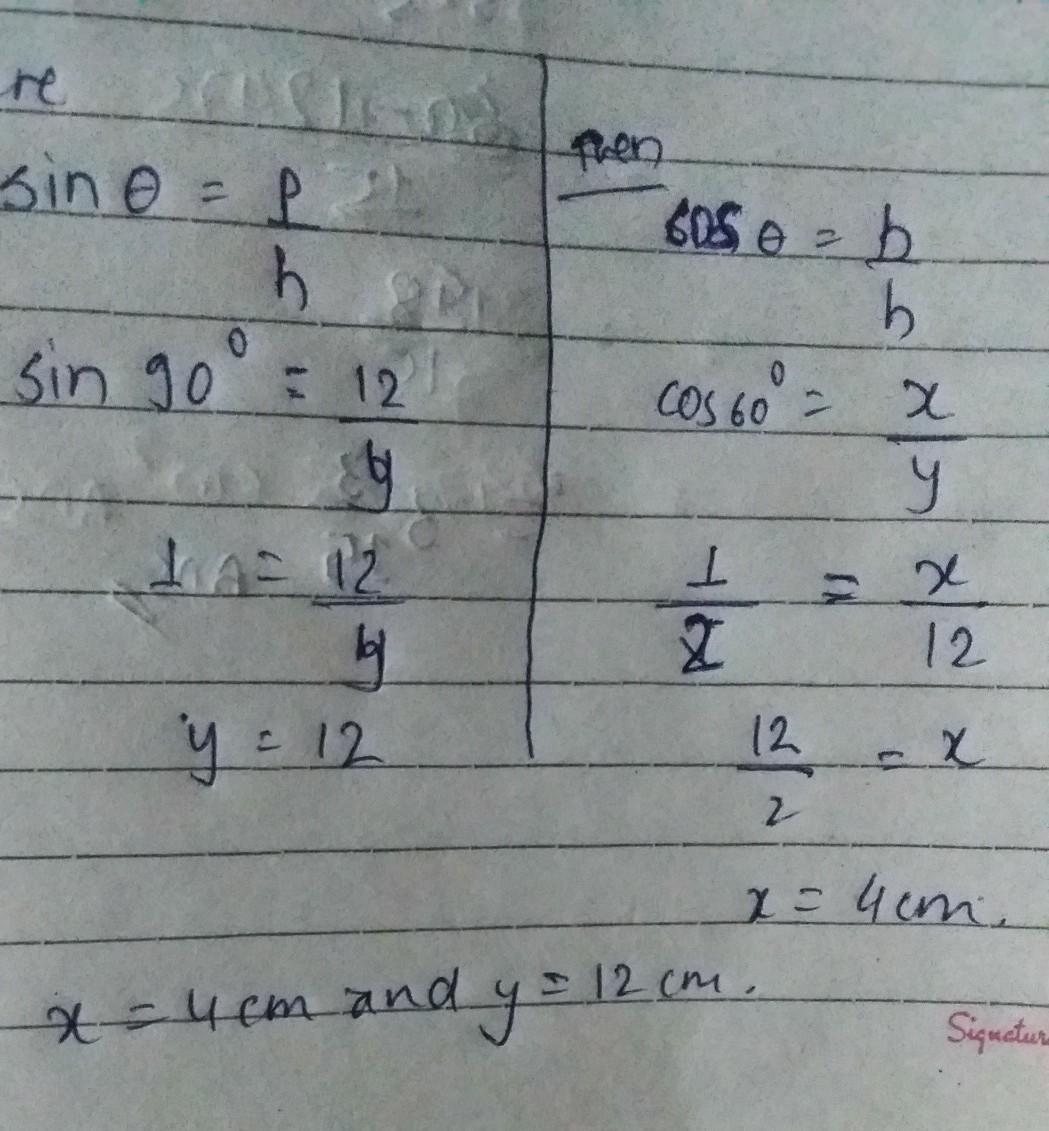 re
sin θ = p
h
sin 90° = 12
y
1 = 12
y
y = 12
then
cos θ = b
h
cos 60° = x
y
1 = x
2 12
12 = x
2
x = 4 cm.
x = 4 cm and y = 12 cm.
Signatur